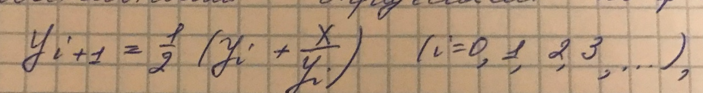 y_{i+1} = \frac{1}{2} (y_i + \frac{x}{y_i}) (i=0, 1, 2, 3, ...),